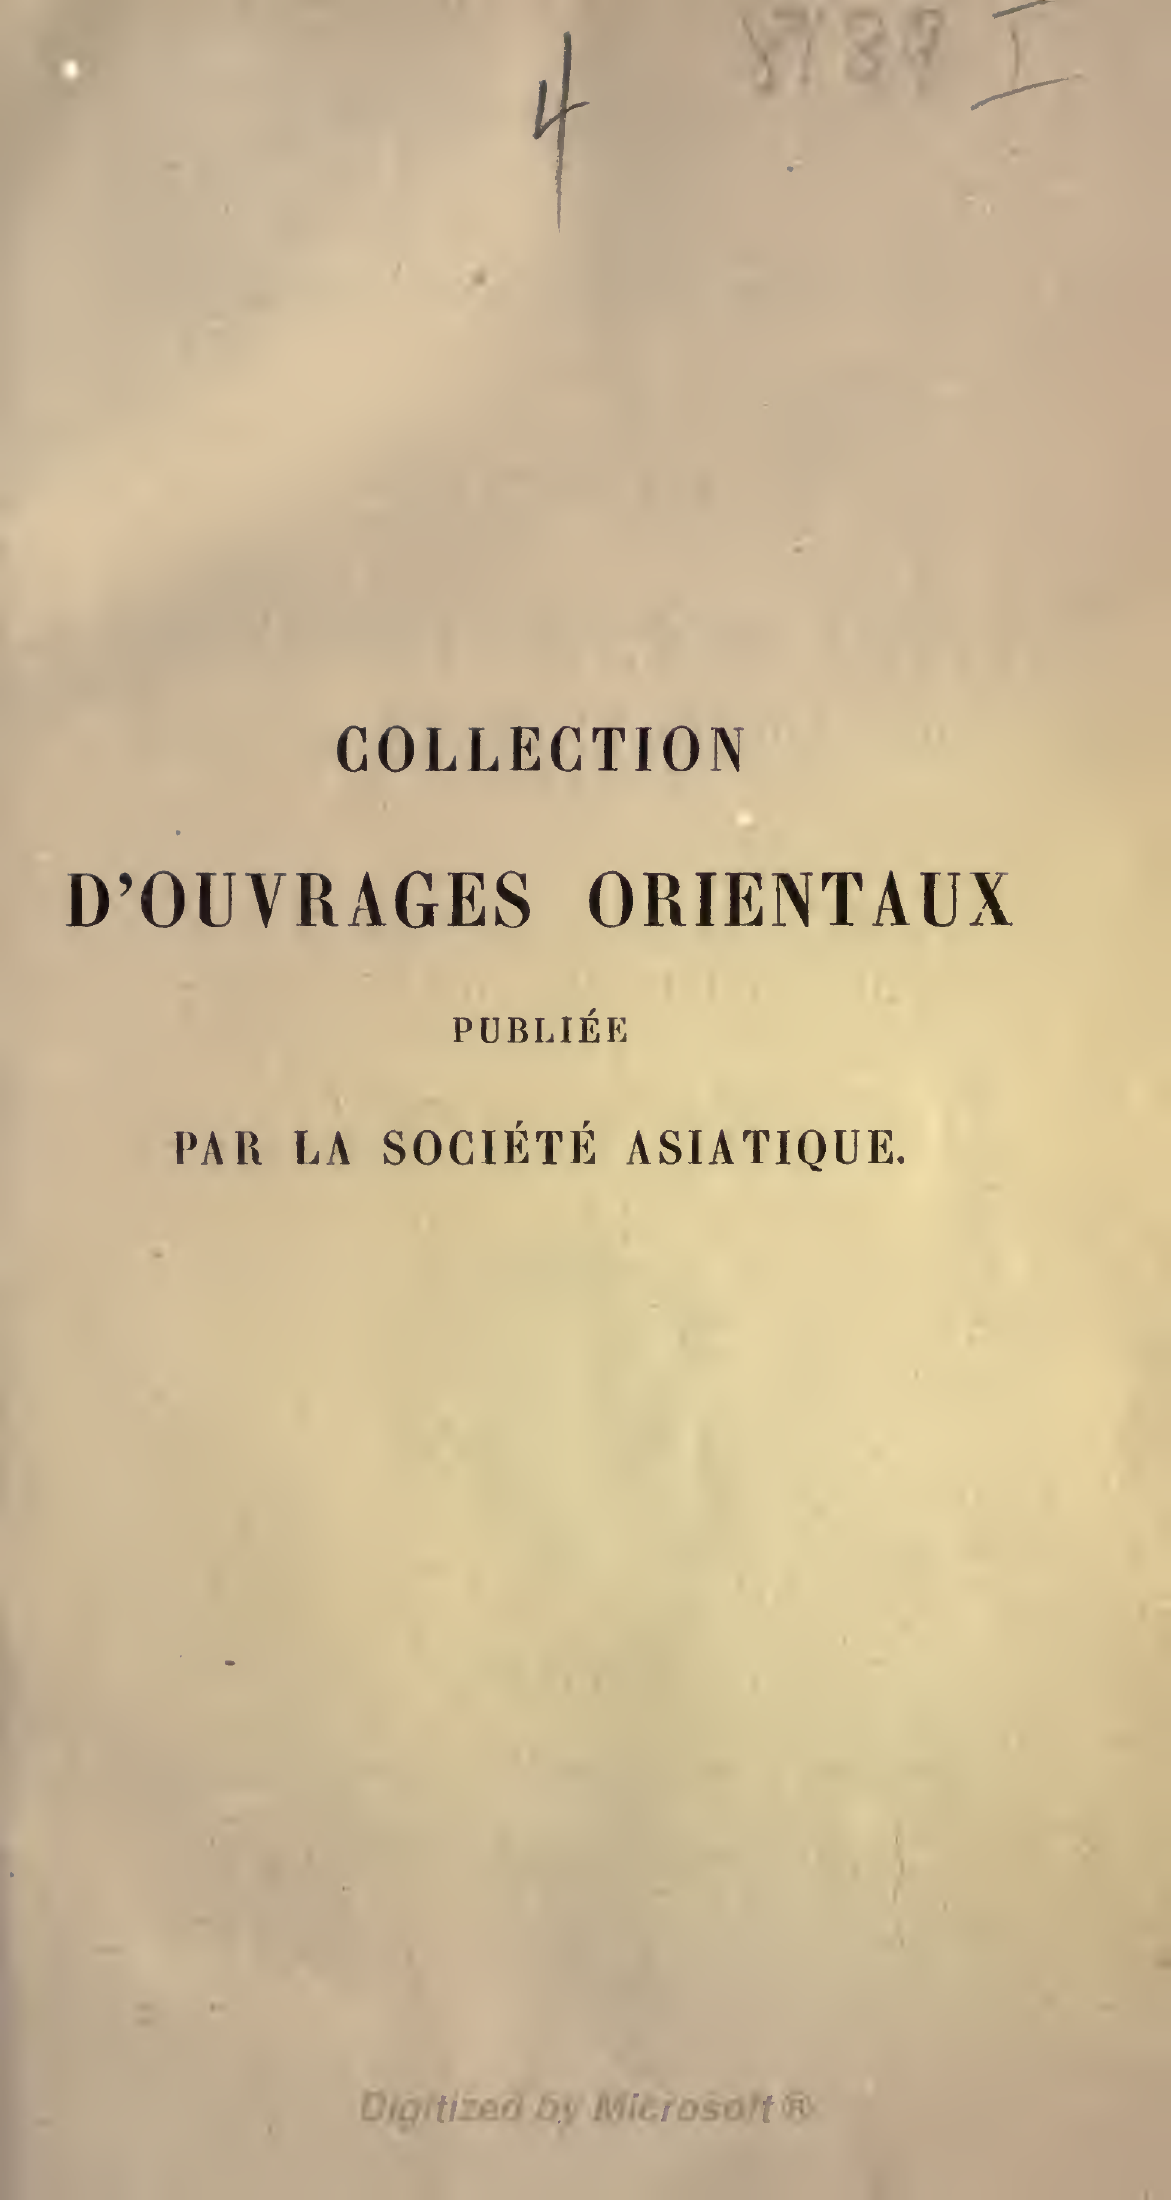 4
I
COLLECTION
D'OUVRAGES ORIENTAUX
PUBLIÉE
PAR LA SOCIÉTÉ ASIATIQUE.
Digitized by Microsoft ®